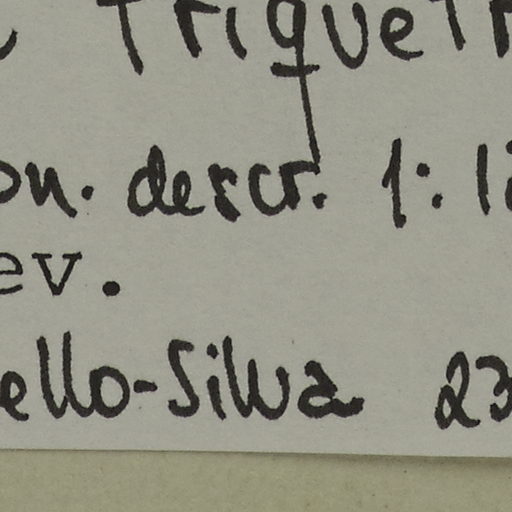 triquetr
on. descr. 1: 1
ev.
ello-Silva 23